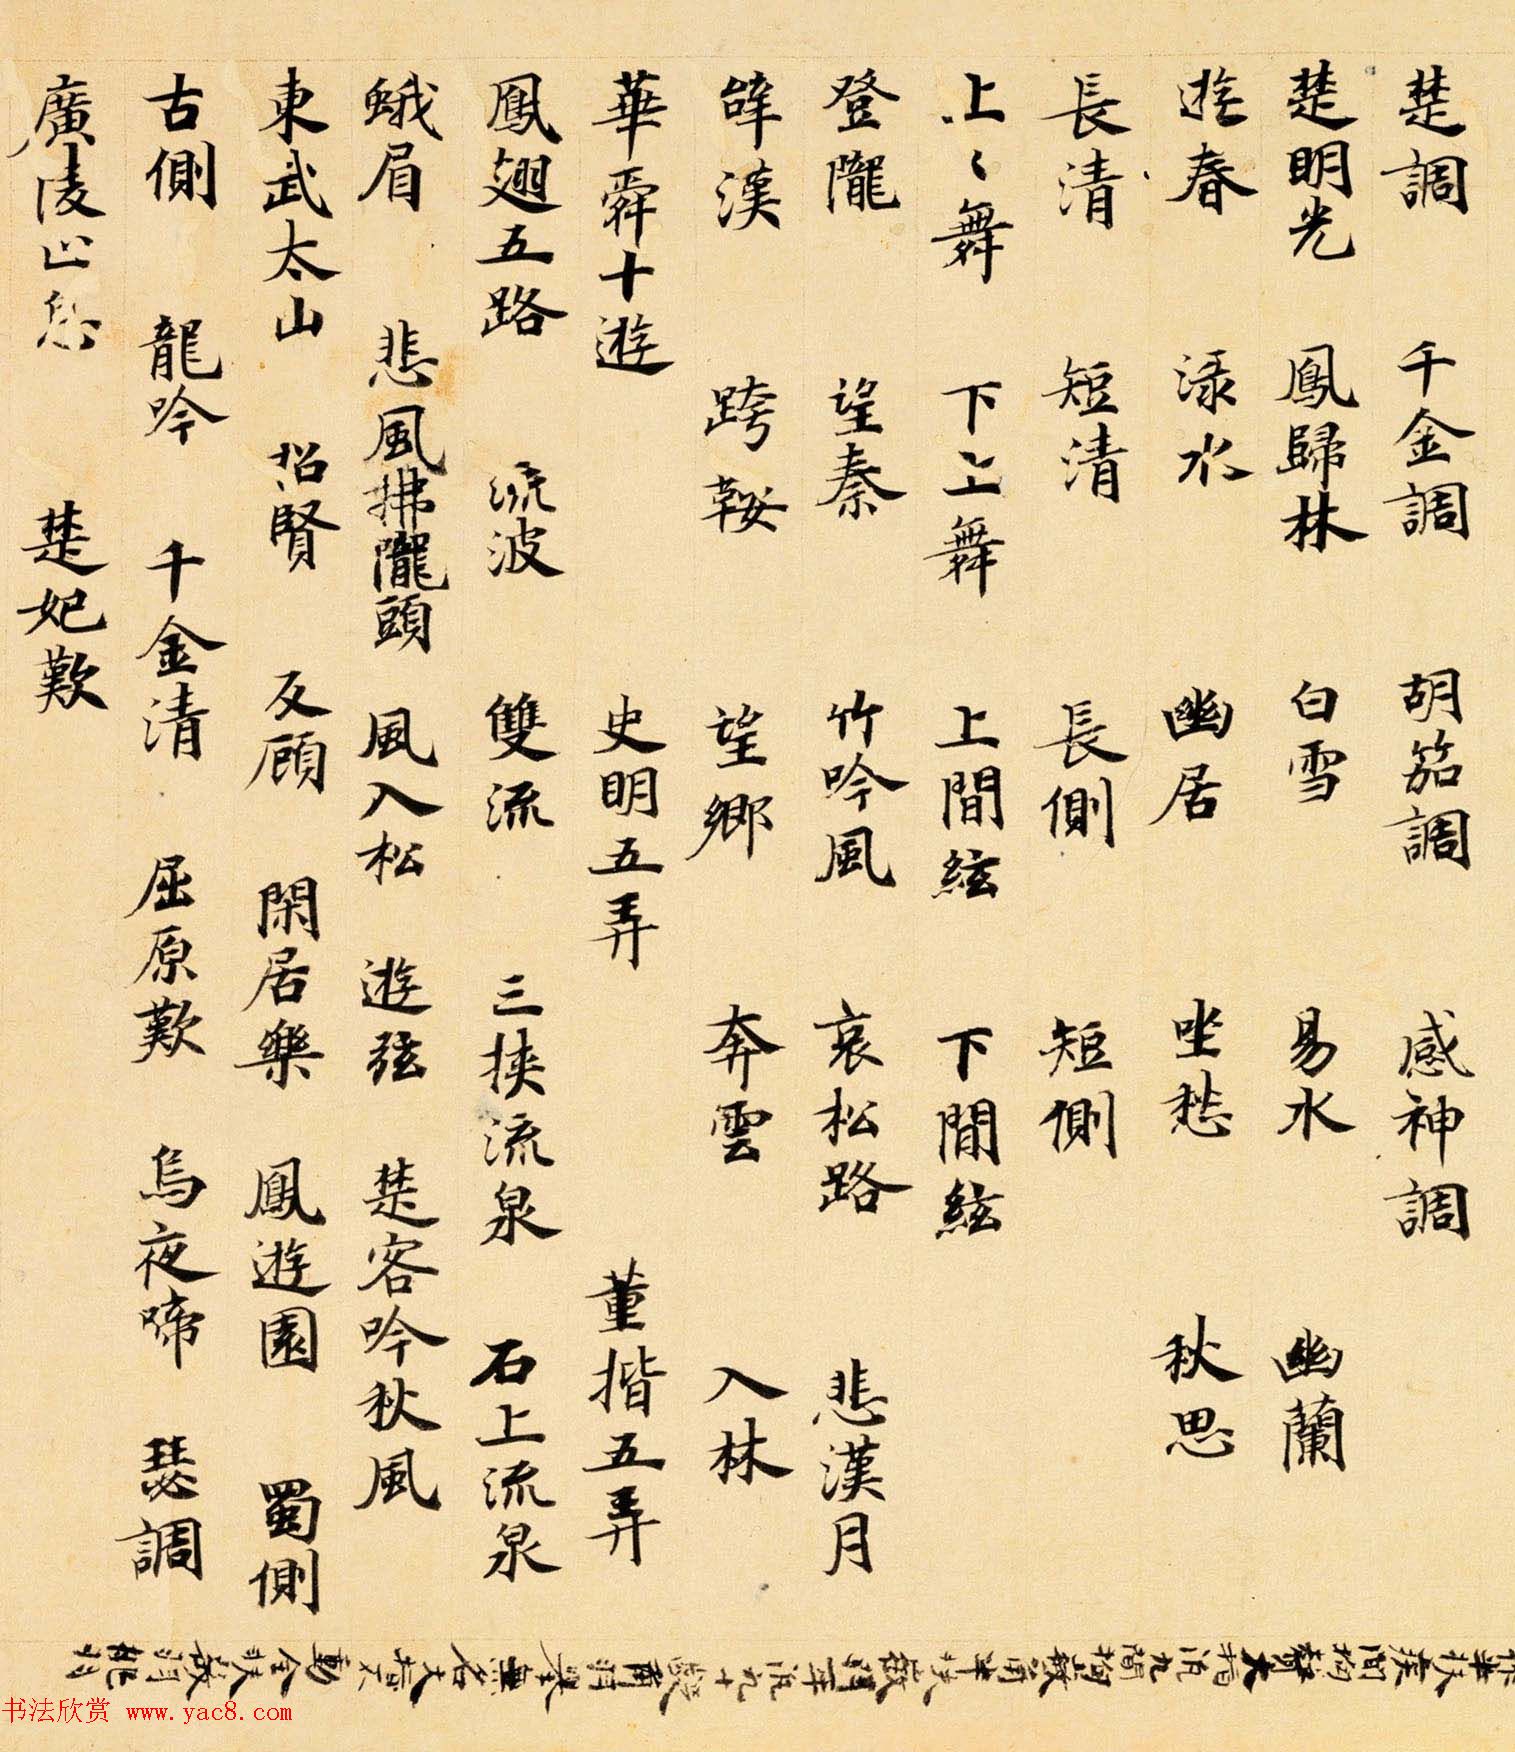 楚調 千金調 胡笳調 感神調
楚明光 鳳歸林 白雪 易水 幽蘭
遊春 淥水 幽居 坐愁 秋思
長清 短清 長側 短側
上々舞 下上舞 上間絃 下間絃
登隴 望秦 竹吟風 哀松路 悲漢月
辝漢 跨鞍 望鄉 奔雲 入林
華舜十遊 史明五弄 董揩五弄
鳳翅五路 流波 雙流 三挾流泉 石上流泉
蛾眉 悲風拂隴頭 風入松 遊弦 楚客吟秋風
東武太山 招賢 反顧 閑居樂 鳳遊園 蜀側
古側 龍吟 千金清 屈原歎 烏夜啼 瑟調
廣陵止息 楚妃歎
书法欣赏 www.yac8.com